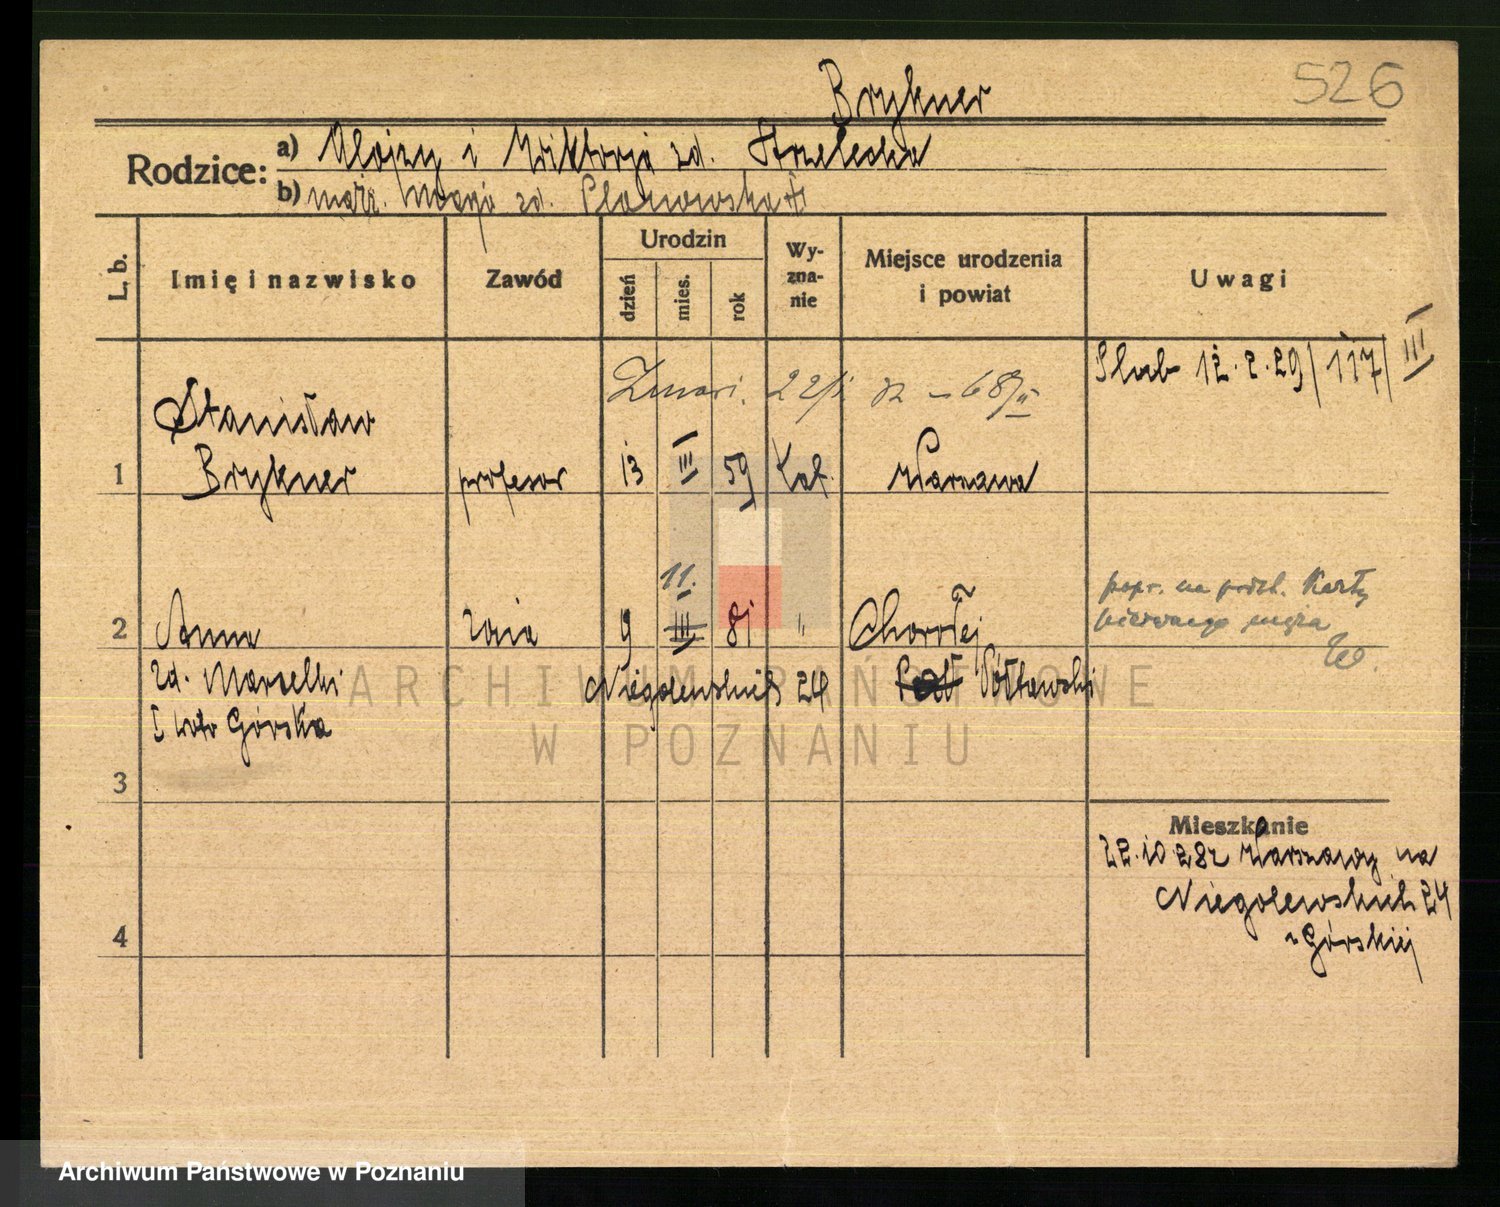 Brykner
526
Rodzice: a) Alojzy i Wiktorja zd. Strzelecka
b) małż. zd.
L. b. Imię i nazwisko Zawód Urodzin dzień mies. rok Wyznanie Miejsce urodzenia i powiat Uwagi
Ślub 12.2.29/117/III
Zmarł. 22/1 32 – 68/II
Stanisław
1 Brykner profesor 13 III 59 Kat. Warszawa
11.
popr. na podst. Karty
pierwszego męża
2 Anna żona 9 III 81 "
zd. Marcelki Niegolewskich 24
I voto Górska
3
Mieszkanie
22.10.28 z Warszawy na
Niegolewskich 24
4
u Górskiej
ARCHIWUM PAŃSTWOWE
W POZNANIU
Archiwum Państwowe w Poznaniu